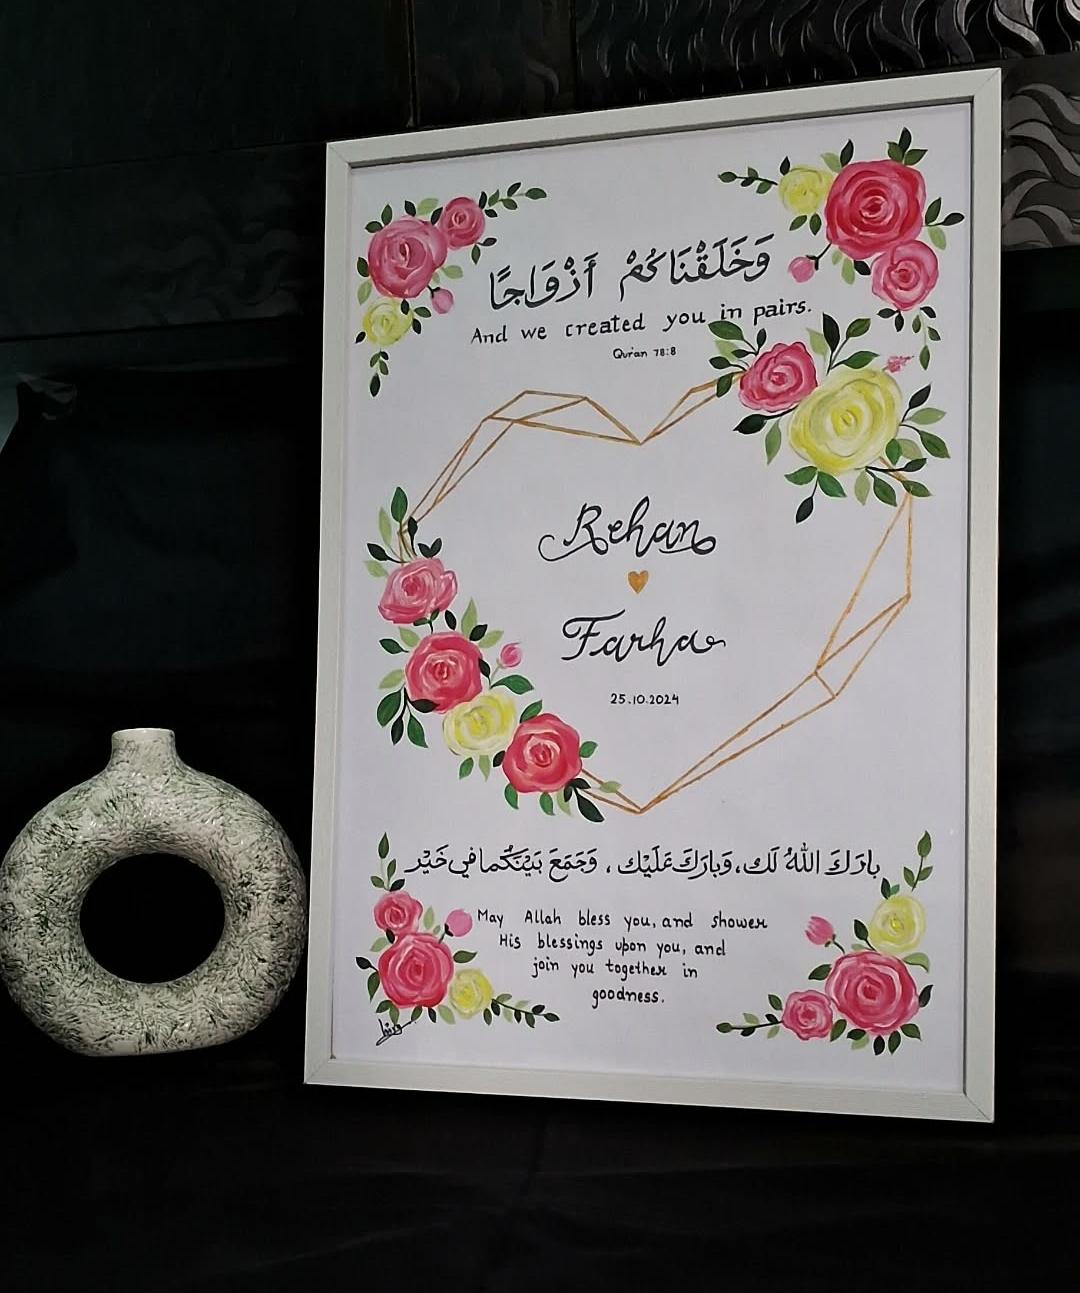 وَخَلَقْنَاكُمْ أَزْوَاجًا
And we created you in pairs.
Qur'an 78:8
Rehan
Farha
25.10.2024
بارَكَ اللهُ لَك، وَبارَكَ عَلَيْك، وَجَمَعَ بَيْنَكُما في خَيْر
May Allah bless you, and shower
His blessings upon you, and
join you together in
goodness.